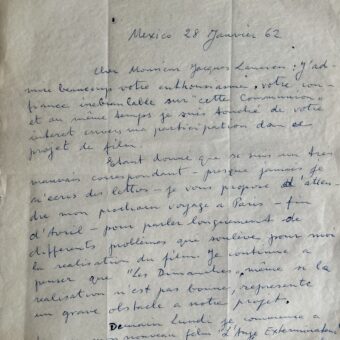 Mexico 28 Janvier 62
Cher Monsieur Jacques : J'ad-
mire beaucoup votre enthousiasme, votre con-
fiance inebranlable sur cette Communion
et au même temps je suis touché de votre
interet envers ma participation dans ce
projet de film.
Etant donné que je suis un tres
mauvais correspondant - presque jamais je
n'ecris des lettres - je vous propose d'atten-
dre mon prochain voyage a Paris - fin
d'Avril - pour parler longuement de
differents problèmes que soulève pour moi
la realisation du film. Je continue a
penser que "Les Dimanches", même si la
realisation n'est pas bonne, represente
un grave obstacle a notre projet.
Demain Lundi je commence a
nouveau film "L'Ange Exterminateur"